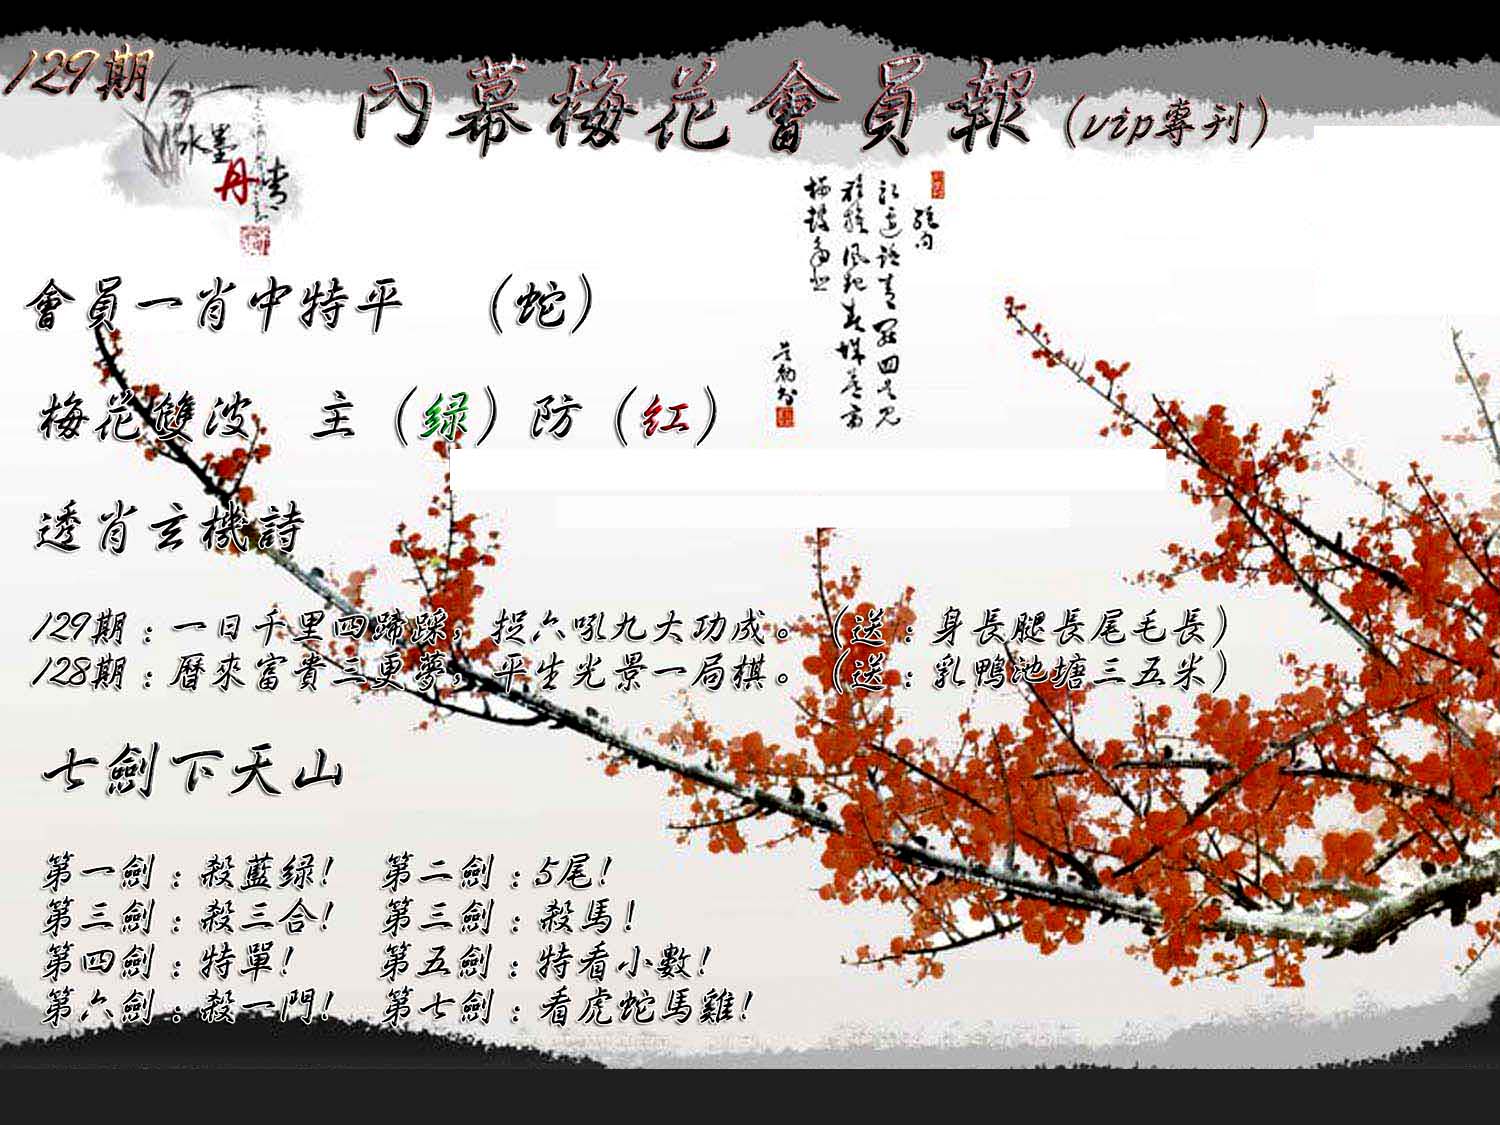 129期
內幕梅花會員報(vip專刊)
水墨
丹青
會員一肖中特平 (蛇)
梅花雙波 主(绿)防(红)
透肖玄機詩
129期:一日千里四蹄踩,捉六吼九大功成。(送:身長腿長尾毛長)
128期:曆來富貴三更夢,平生光景一局棋。(送:乳鴨池塘三五米)
七劍下天山
第一劍:殺藍绿! 第二劍:5尾!
第三劍:殺三合! 第三劍:殺馬!
第四劍:特單! 第五劍:特看小數!
第六劍:殺一門! 第七劍:看虎蛇馬雞!